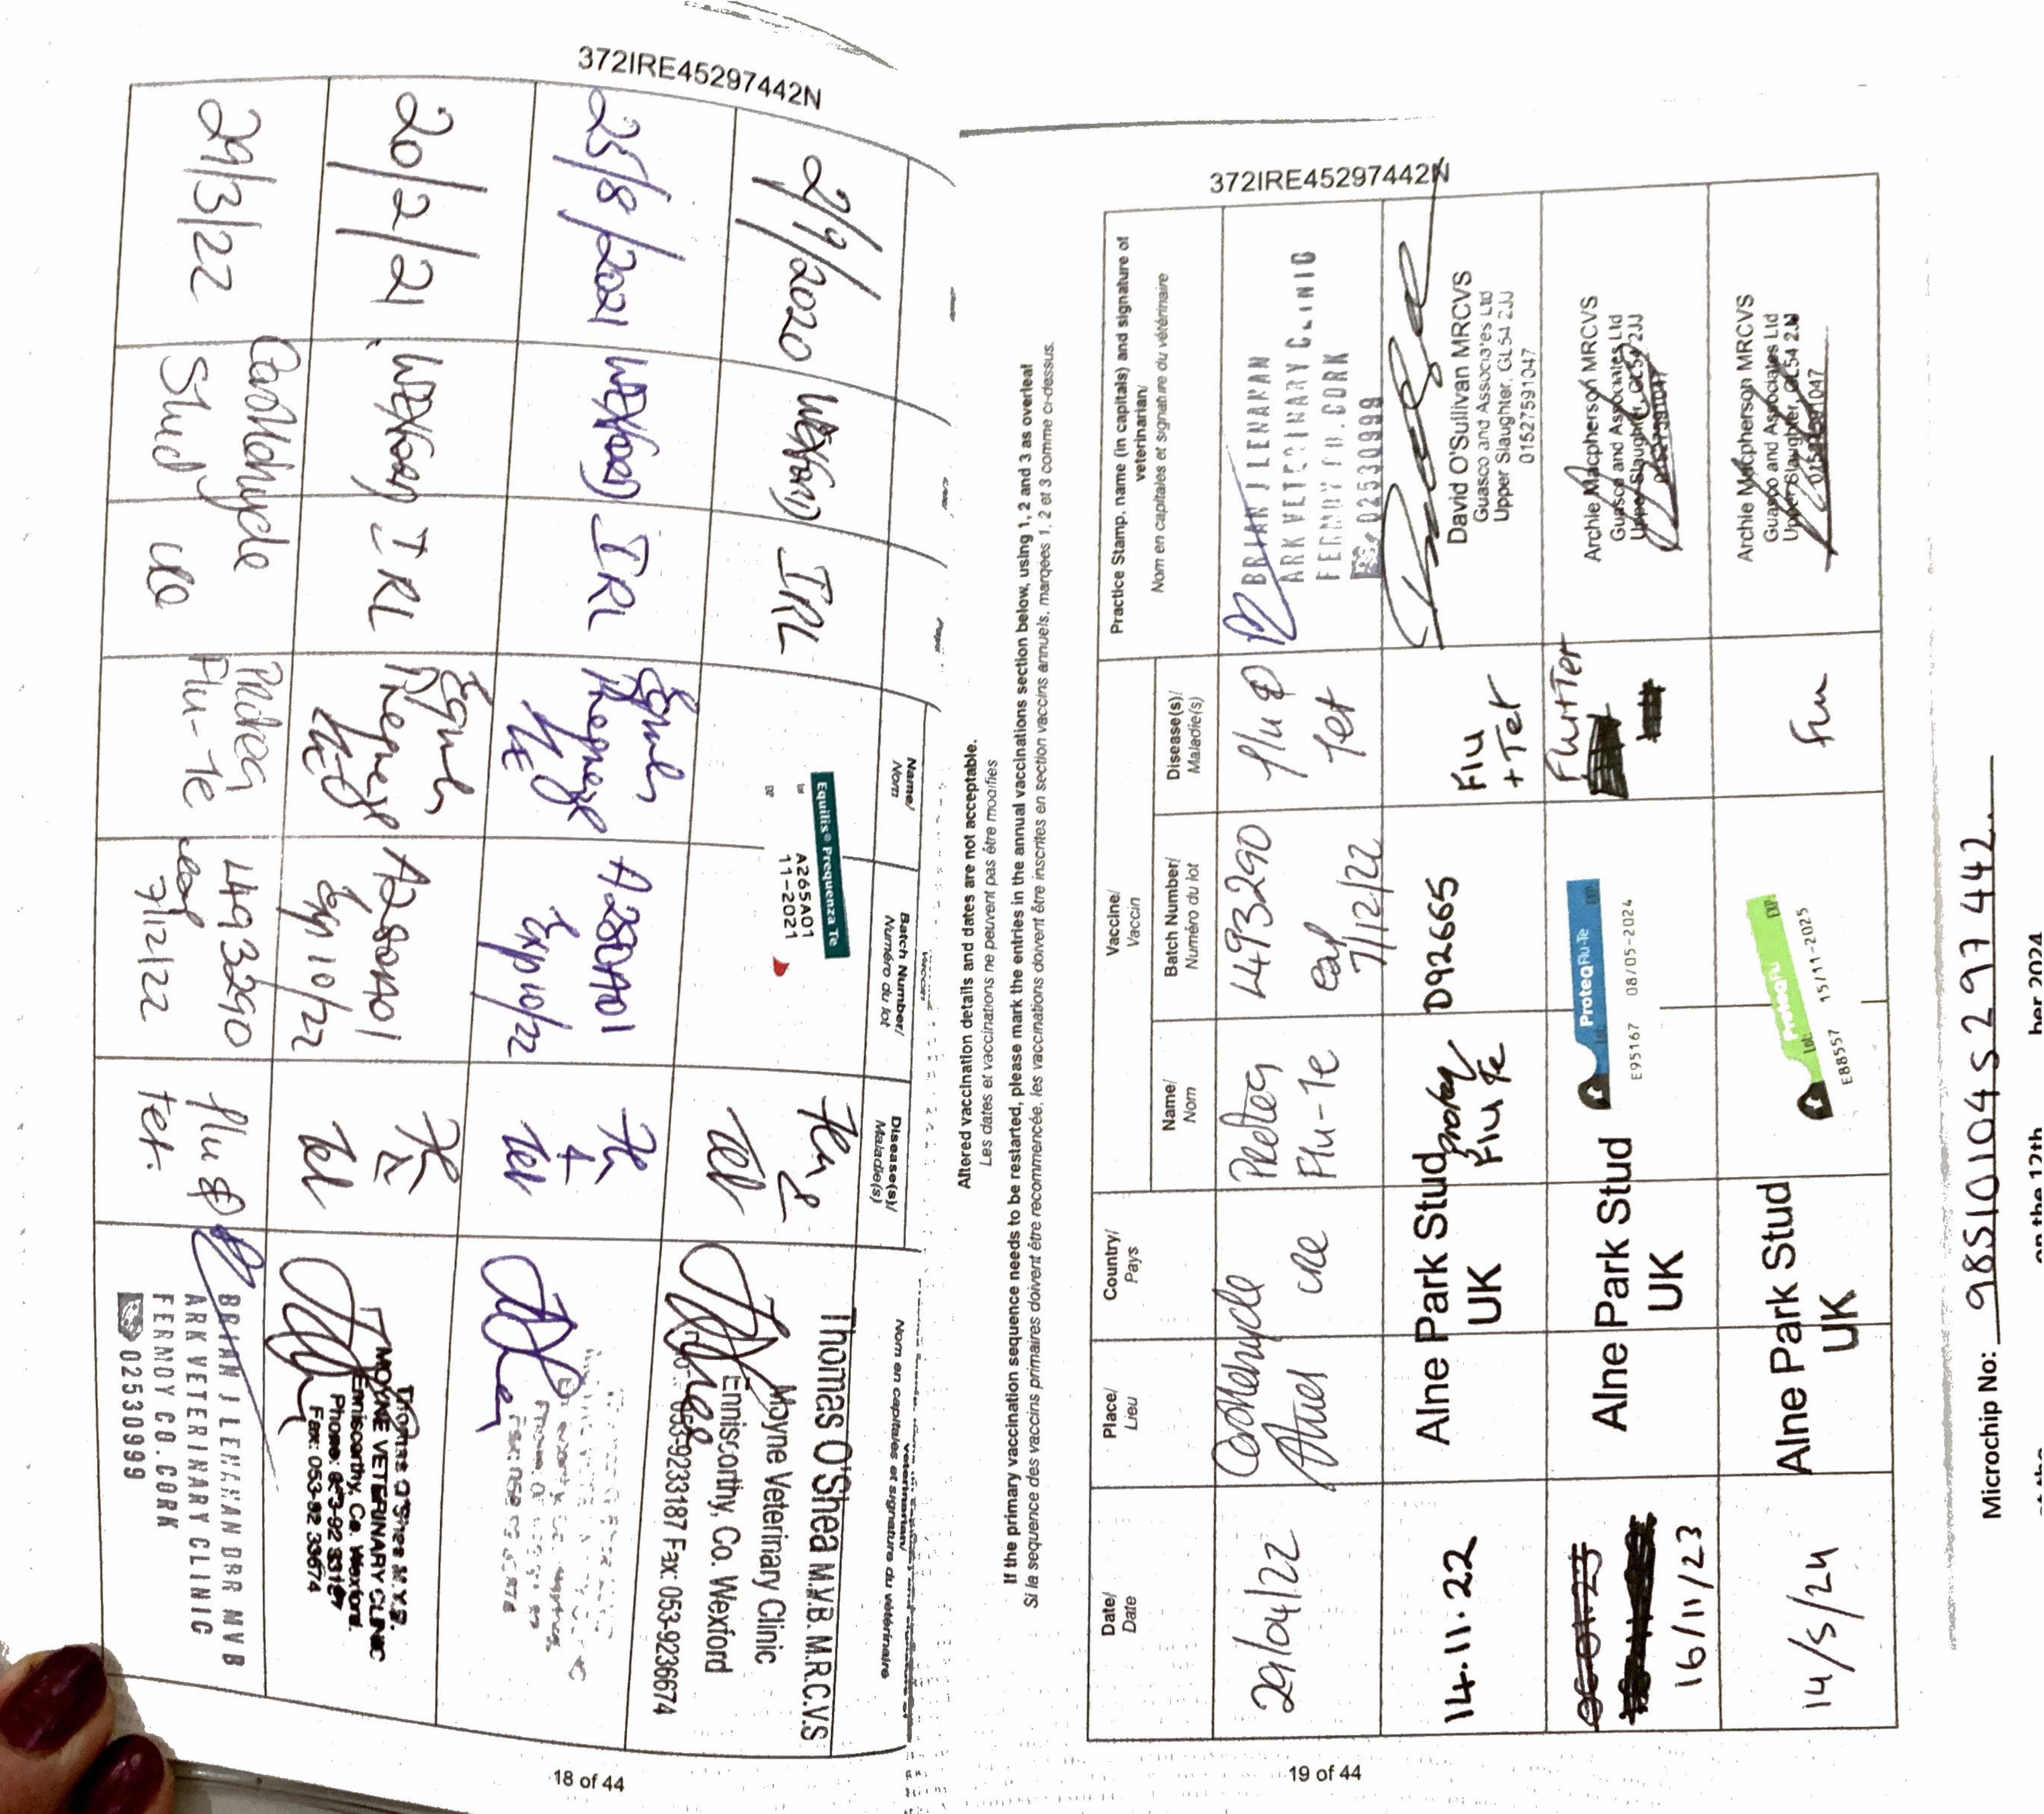 372IRE45297442N
Name/
Nom
Batch Number/
Numéro du lot
Disease(s)/
Maladie(s)
veterinarian/
Nom en capitales et signature du vétérinaire
2/9/2020
Wexford
IRL
Equilis® Prequenza Te
A265A01
11-2021
Flu &
Tet
Thomas O'Shea M.V.B. M.R.C.V.S
Moyne Veterinary Clinic
Enniscorthy, Co. Wexford
053-9233187 Fax: 053-9236674
25/8/2021
Wexford
IRL
Equilis
A280A01
Exp 10/22
Tet
20/2/21
Wexford
IRL
Equilis
A280A01
Exp 10/22
Tet
Thomas O'Shea M.V.B.
MOYNE VETERINARY CLINIC
Enniscorthy, Co. Wexford.
Phone: 053-92 33187
Fax: 053-92 33674
29/3/22
Castlehyde
Stud
IRE
Proteq
Flu-Te
L493290
exp
7/12/22
flu &
Tet.
BRIAN J LENAHAN DBR MVB
ARK VETERINARY CLINIC
FERMOY CO.CORK
02530999
18 of 44
Altered vaccination details and dates are not acceptable.
Les dates et vaccinations ne peuvent pas être modifies
If the primary vaccination sequence needs to be restarted, please mark the entries in the annual vaccinations section below, using 1, 2 and 3 as overleaf
Si la sequence des vaccins primaires doivent être recommencée, les vaccinations doivent être inscrites en section vaccins annuels, marqees 1, 2 et 3 comme ci-dessus.
372IRE45297442N
Date/
Date
Place/
Lieu
Country/
Pays
Vaccine/
Vaccin
Name/
Nom
Batch Number/
Numéro du lot
Disease(s)/
Maladie(s)
Practice Stamp, name (in capitals) and signature of
veterinarian/
Nom en capitales et signature du vétérinaire
29/04/22
Castlehyde
Stud
IRE
Proteq
Flu-Te
L493290
exp
7/12/22
flu &
Tet
BRIAN J LENAHAN
ARK VETERINARY CLINIC
FERMOY CO.CORK
02530999
14.11.22
Alne Park Stud
UK
Proteq
Flu Te
D92665
Flu
+ Tet
David O'Sullivan MRCVS
Guasco and Associates Ltd
Upper Slaughter, GL54 2JJ
01527591047
16/11/23
Alne Park Stud
UK
ProteqFlu-Te
E95167 08/05-2024
Flu+Tet
Archie Macpherson MRCVS
Guasco and Associates Ltd
Upper Slaughter, GL54 2JJ
14/5/24
Alne Park Stud
UK
ProteqFlu
Lot:
EXP:
E88557 15/11-2025
Flu
Archie Macpherson MRCVS
Guasco and Associates Ltd
Upper Slaughter, GL54 2JJ
19 of 44
Microchip No: 985101045297442.